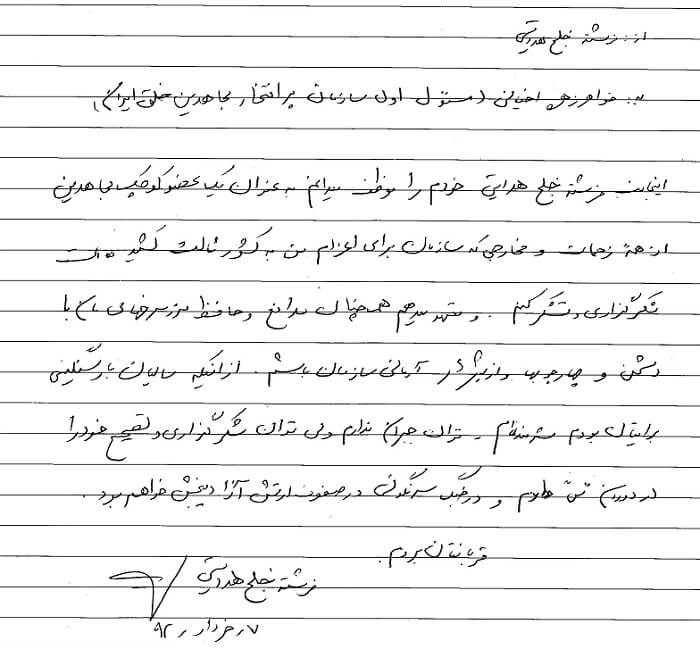 از: فرشته خلج هدایتی
به: خواهر زهره اخیانی (مسئول اول سازمان پر افتخار مجاهدین خلق ایران)
اینجانب فرشته خلج هدایتی خودم را موظف میدانم به عنوان یک عضو کوچک مجاهدین
از همهٔ زحمات و مخارجی که سازمان برای اعزام من به کشور ثالث کشیده است
شکرگزاری و تشکر کنم . و تعهد میدهم همچنان مدافع و حافظ مرز سرخهای مان با
دشمن و چارچوبها و ارزشهای آرمانی سازمان باشم . از اینکه سالیان بار سنگینی
برایتان بودم شرمنده‌ام . توان جبران ندارم ولی توان شکرگزاری و تصحیح خود را
در دوران و در جنگ سرنگونی در صفوف ارتش آزادیبخش خواهم بود .
قربانتان بروم .
فرشته خلج هدایتی
۷ ر خرداد ر ۹۲